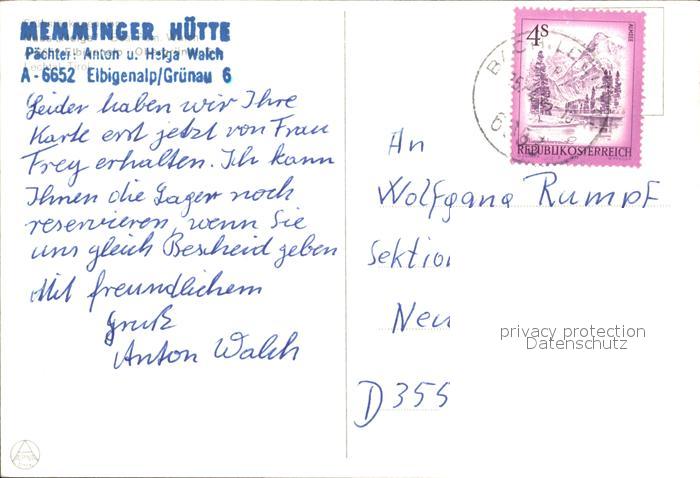 MEMMINGER HÜTTE
Pächter: Anton u. Helga Walch
A-6652 Elbigenalp/Grünau 6
Leider haben wir Ihre
Karte erst jetzt von Frau
Frey erhalten. Ich kann
Ihnen die Lager noch
reservieren, wenn Sie
uns gleich Bescheid geben
Mit freundlichem
Gruß
Anton Walch
4s
ALMSEE
REPUBLIK ÖSTERREICH
An
Wolfgang Rumpf
Sektion
Neu
privacy protection
Datenschutz
D 355